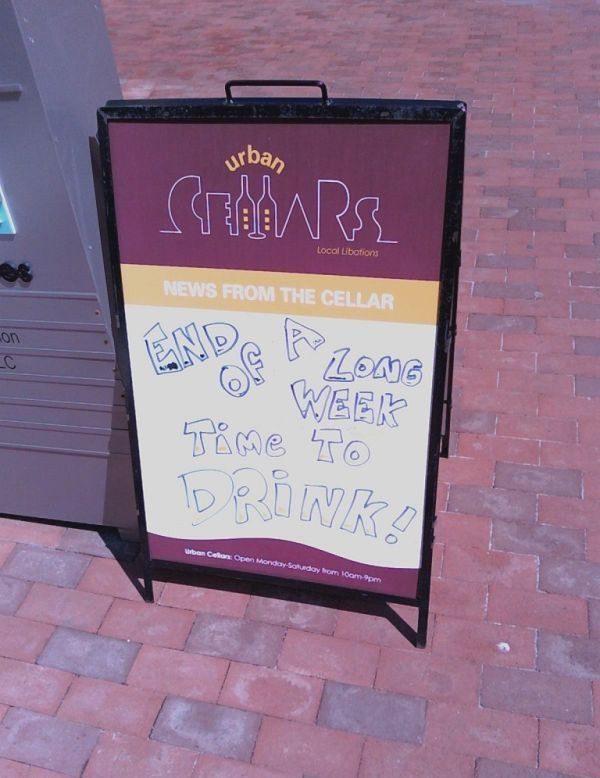 urban
CELLARS
Local Libations
NEWS FROM THE CELLAR
END OF A LONG
WEEK
TiME TO
DRiNK!
Urban Cellars: Open Monday-Saturday from 10am-9pm
on
LC